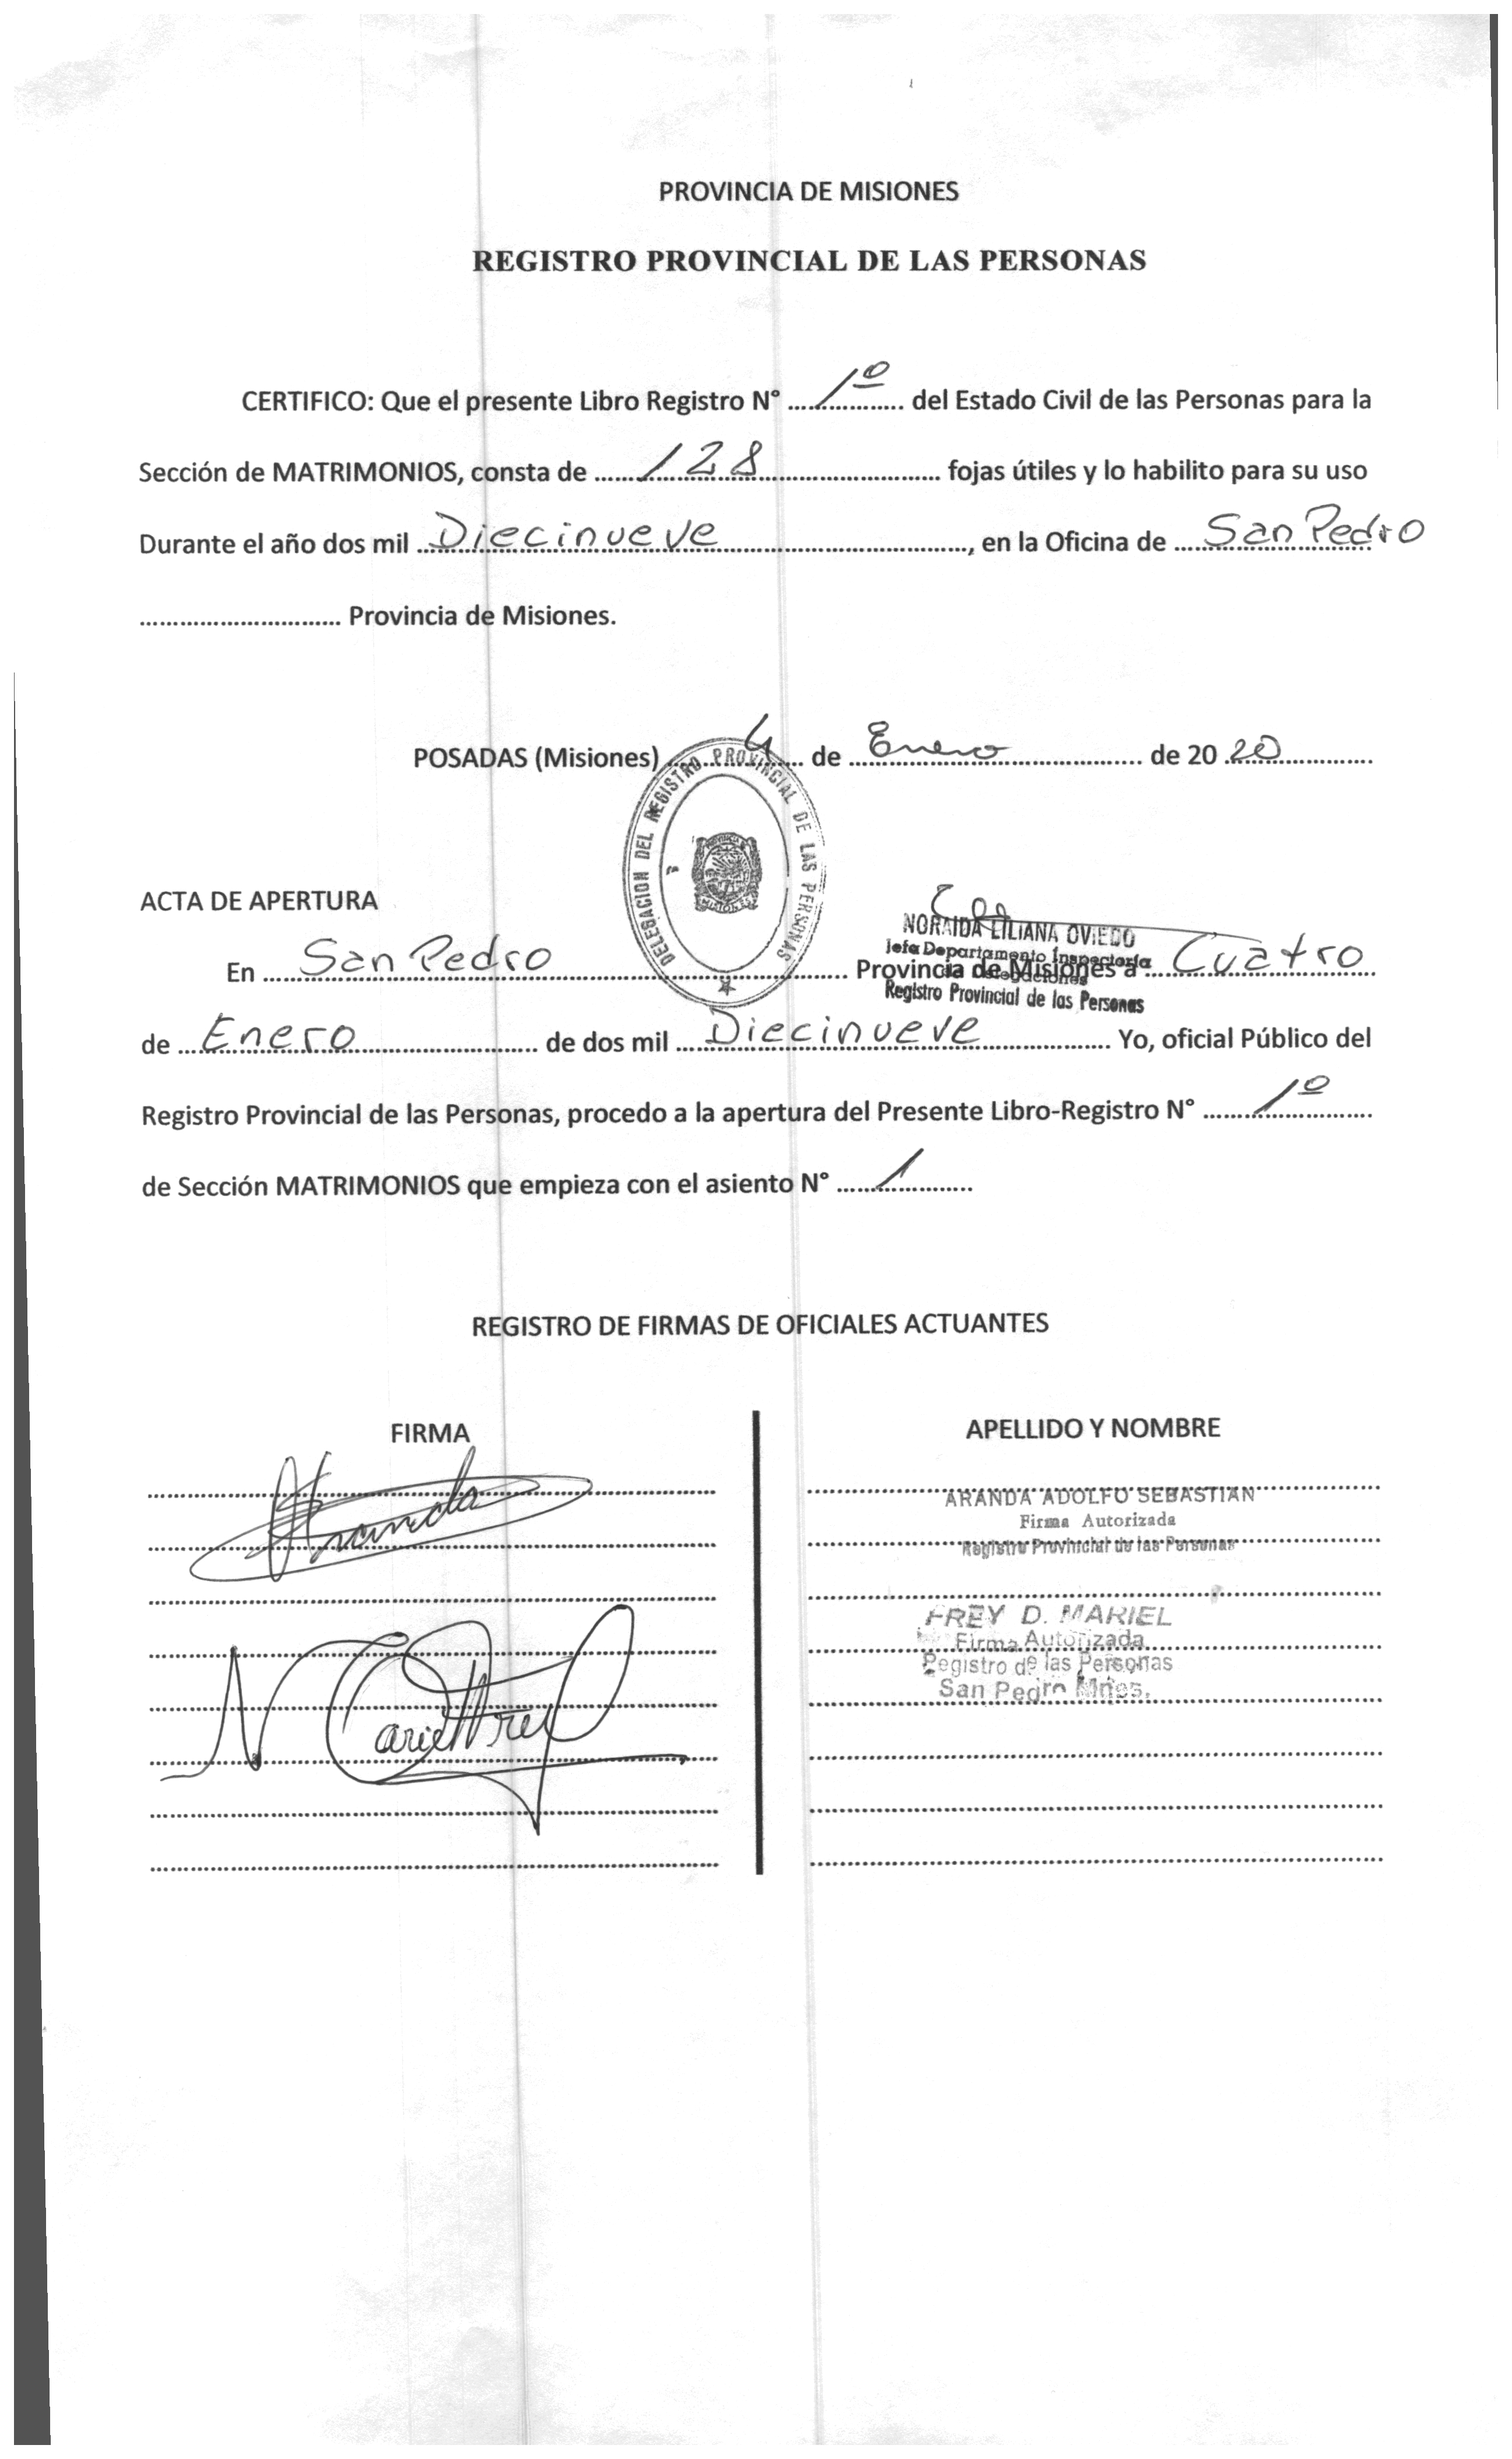 PROVINCIA DE MISIONES
REGISTRO PROVINCIAL DE LAS PERSONAS
CERTIFICO: Que el presente Libro Registro N° ........1º........ del Estado Civil de las Personas para la
Sección de MATRIMONIOS, consta de ........128........ fojas útiles y lo habilito para su uso
Durante el año dos mil ........Diecinueve........, en la Oficina de ........San Pedro
........ Provincia de Misiones.
POSADAS (Misiones) ........4........ de ........Enero........ de 20 20........
DELEGACION DEL REGISTRO PROVINCIAL DE LAS PERSONAS
ACTA DE APERTURA
NORAIDA LILIANA OVIEDO
Jefa Departamento Inspectoría
En ........San Pedro........ Provincia de Misiones a ........Cuatro........
Registro Provincial de las Personas
de ........Enero........ de dos mil ........Diecinueve........ Yo, oficial Público del
Registro Provincial de las Personas, procedo a la apertura del Presente Libro-Registro N° ........1º........
de Sección MATRIMONIOS que empieza con el asiento N° ........1........
REGISTRO DE FIRMAS DE OFICIALES ACTUANTES
FIRMA
APELLIDO Y NOMBRE
ARANDA ADOLFO SEBASTIAN
Firma Autorizada
Registro Provincial de las Personas
FREY D. MARIEL
Firma Autorizada
Registro de las Personas
San Pedro Mnes.